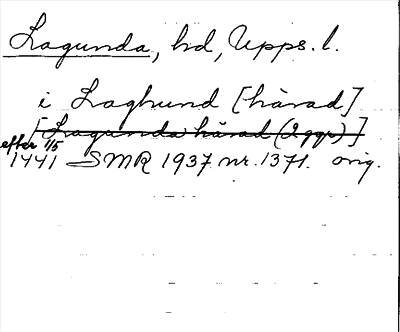 Lagunda, hd, Upps. l.
i Laghund [härad]
[Lagunda härad (2 ggr)]
efter 1/5
1441 SMR 1937 nr. 1371. orig.